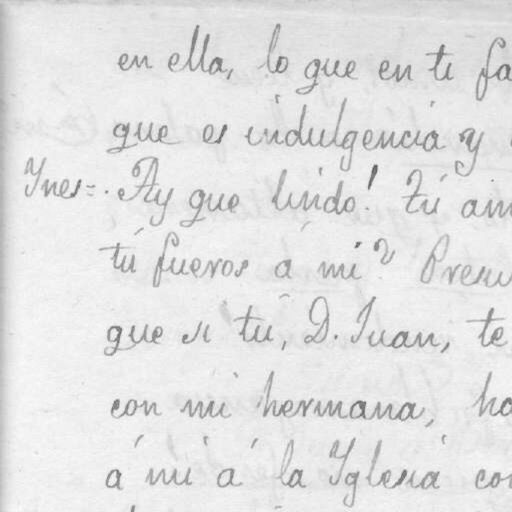 en ella, lo que en ti fa
que es indulgencia y
Ynes=. Ay que lindo! Tú am
tú fueros á mi? Presu
que si tú, D. Juan, te
con mi hermana, ha
á mi á la Yglesia con